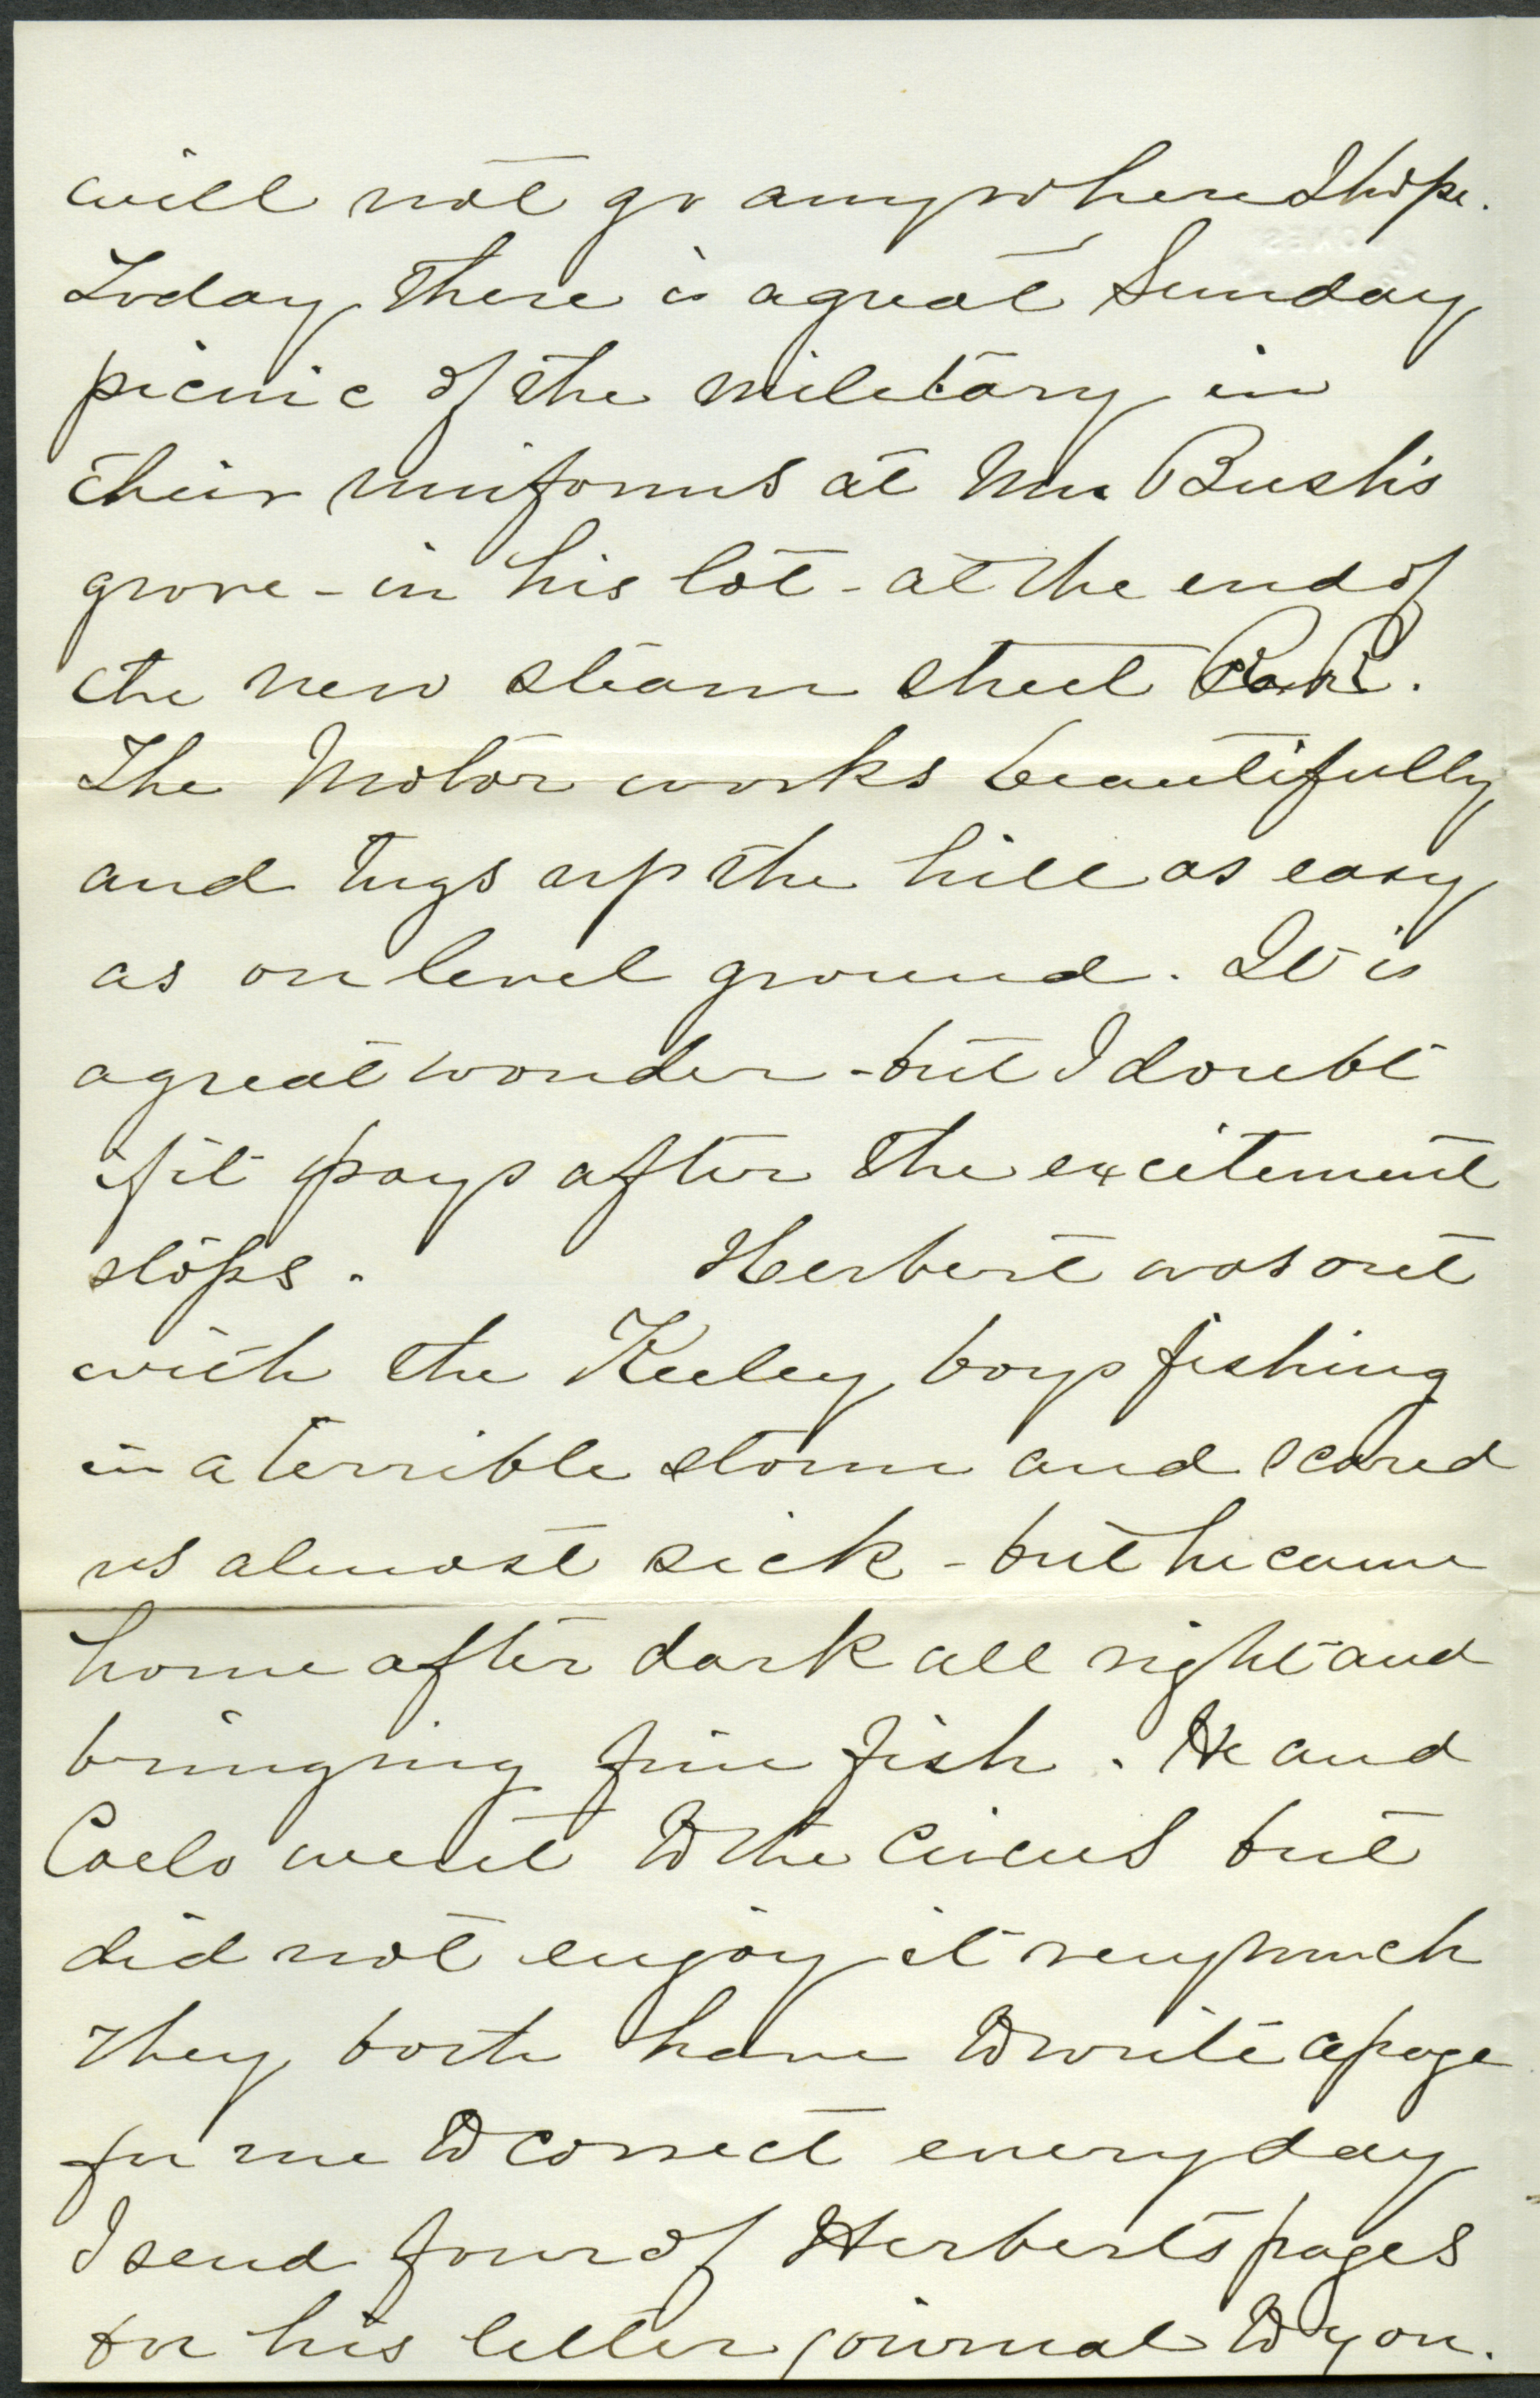 will not go anywhere I hope.
Today there is a great Sunday
picnic of the military in
their uniforms at Mr Bush's
grove - in his lot - at the end of
the new steam street R.R.
The Motor works beautifully
and tugs up the hill as easy
as on level ground. It is
a great wonder - but I doubt
if it pays after the excitement
stops. Herbert was out
with the Keeley boys fishing
in a terrible storm and scared
us almost sick - but he came
home after dark all right and
bringing fine fish. He and
Carlo went to the Circus but
did not enjoy it very much
They both have to write a page
for me to correct every day
I send four of Herberts pages
for his letter journal to you.